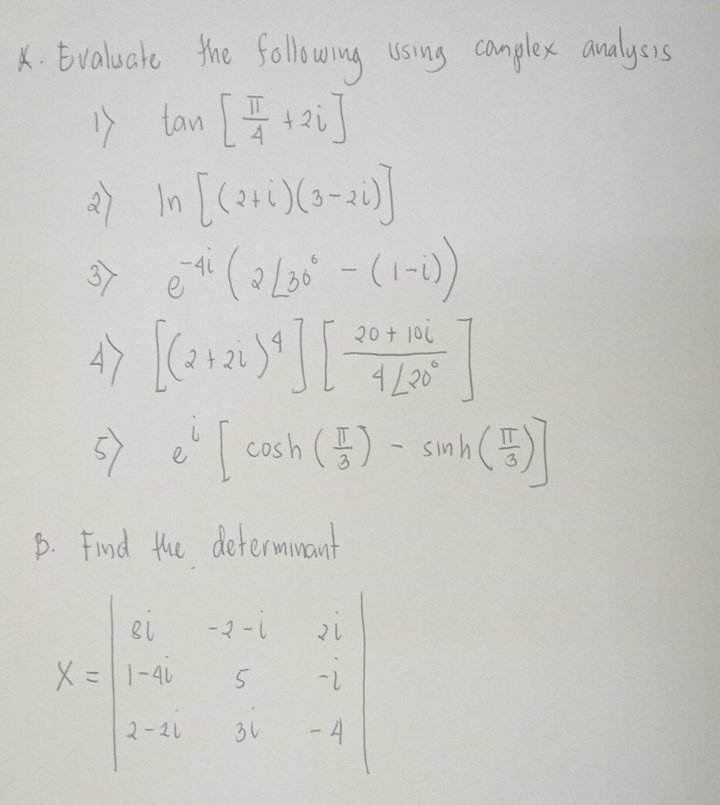 A. Evaluate the following using complex analysis
1) tan [π/4 + 2i]
2) ln [(2+i)(3-2i)]
3) e^-4i (2∠30° - (1-i))
4) [(2+2i)^4] [20 + 10i / 4∠20°]
5) e^i [cosh (π/3) - sinh (π/3)]
B. Find the determinant
8i -2-i 2i
X = 1-4i 5 -i
2-2i 3i -4